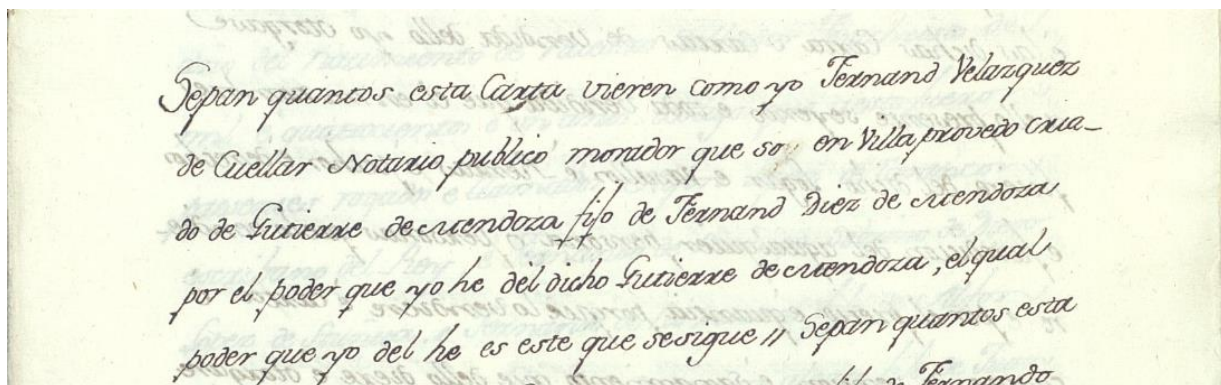 Sepan quantos esta Carta vieren como yo Fernand Velazquez
de Cuellar Notario publico morador que so en Villaprovedo cria-
do de Gutierre de Mendoza fijo de Fernand Diez de Mendoza
por el poder que yo he del dicho Gutierre de Mendoza, el qual
poder que yo del he es este que se sigue // Sepan quantos esta
de Fernando